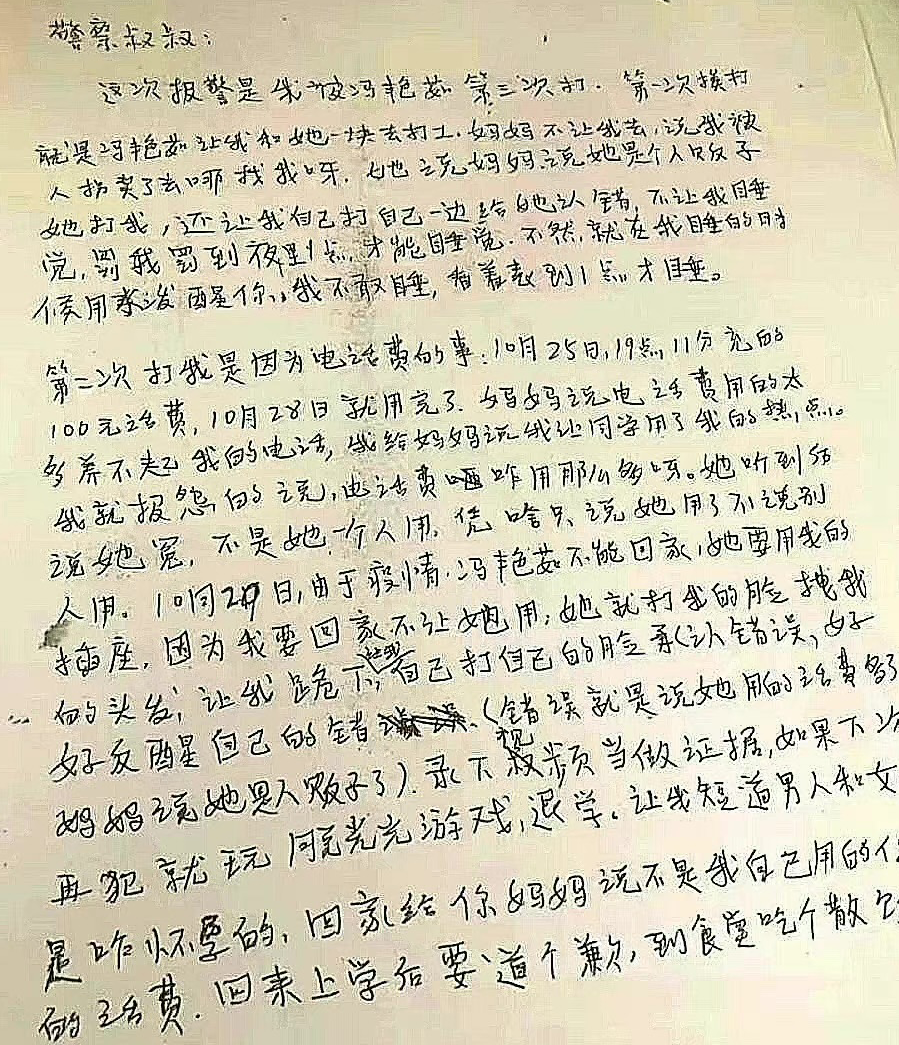 警察叔叔:
这次报警是我被冯艳茹第三次打.第一次挨打
就是冯艳茹让我和她一块去打工.妈妈不让我去,说我被
人拐卖了去哪找我呀.她说妈妈说她是个人贩子
她打我,还让我自己打自己一边给她认错,不让我睡
觉,罚我罚到夜里1点,才能睡觉.不然,就在我睡的时
候用水泼醒你.我不敢睡,看着表到1点才睡。
第二次打我是因为电话费的事:10月25日,19点,11分充的
100元话费,10月28日就用完了.妈妈说电话费用的太
多养不起我的电话,我给妈妈说我让同学用了我的热点。
我就报怨的说,电话费咂咋用那么多呀。她听到后
说她冤,不是她一个人用,凭啥只说她用了不说别
人用。10月29日,由于疫情.冯艳茹不能回家,她要用我的
插座,因为我要回家不让她用,她就打我的脸拽我
的头发,让我跪下,让我自己打自己的脸承认错误,好
好反醒自己的错(错误就是说她用的话费多了
妈妈说她是人贩子了).录下视频当做证据,如果下次
再犯就玩脱光光游戏,退学。让我短道男人和女
是咋怀孕的,回家给你妈妈说不是我自己用的你
的话费.回来上学后要道个歉,到食堂吃个散